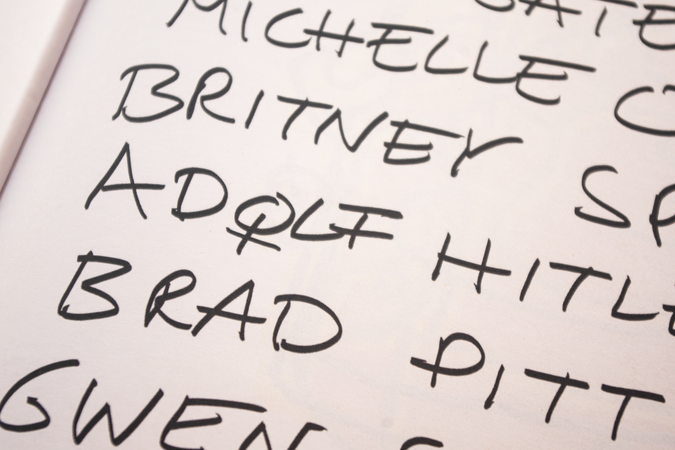 MICHELLE
BRITNEY SP
ADOLF HITLE
BRAD PITT
GWEN